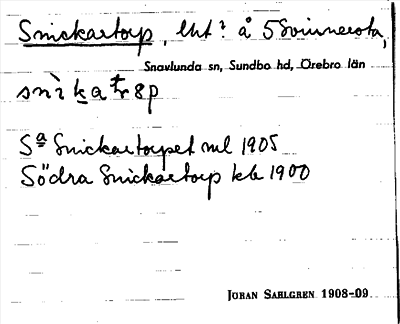 Snickartorp, lht. å Svinnersta,
Snavlunda sn, Sundbo hd, Örebro län
Sa Snickartorpet ml 1905
Södra Snickartorp kb 1900
JÖRAN SAHLGREN 1908-09